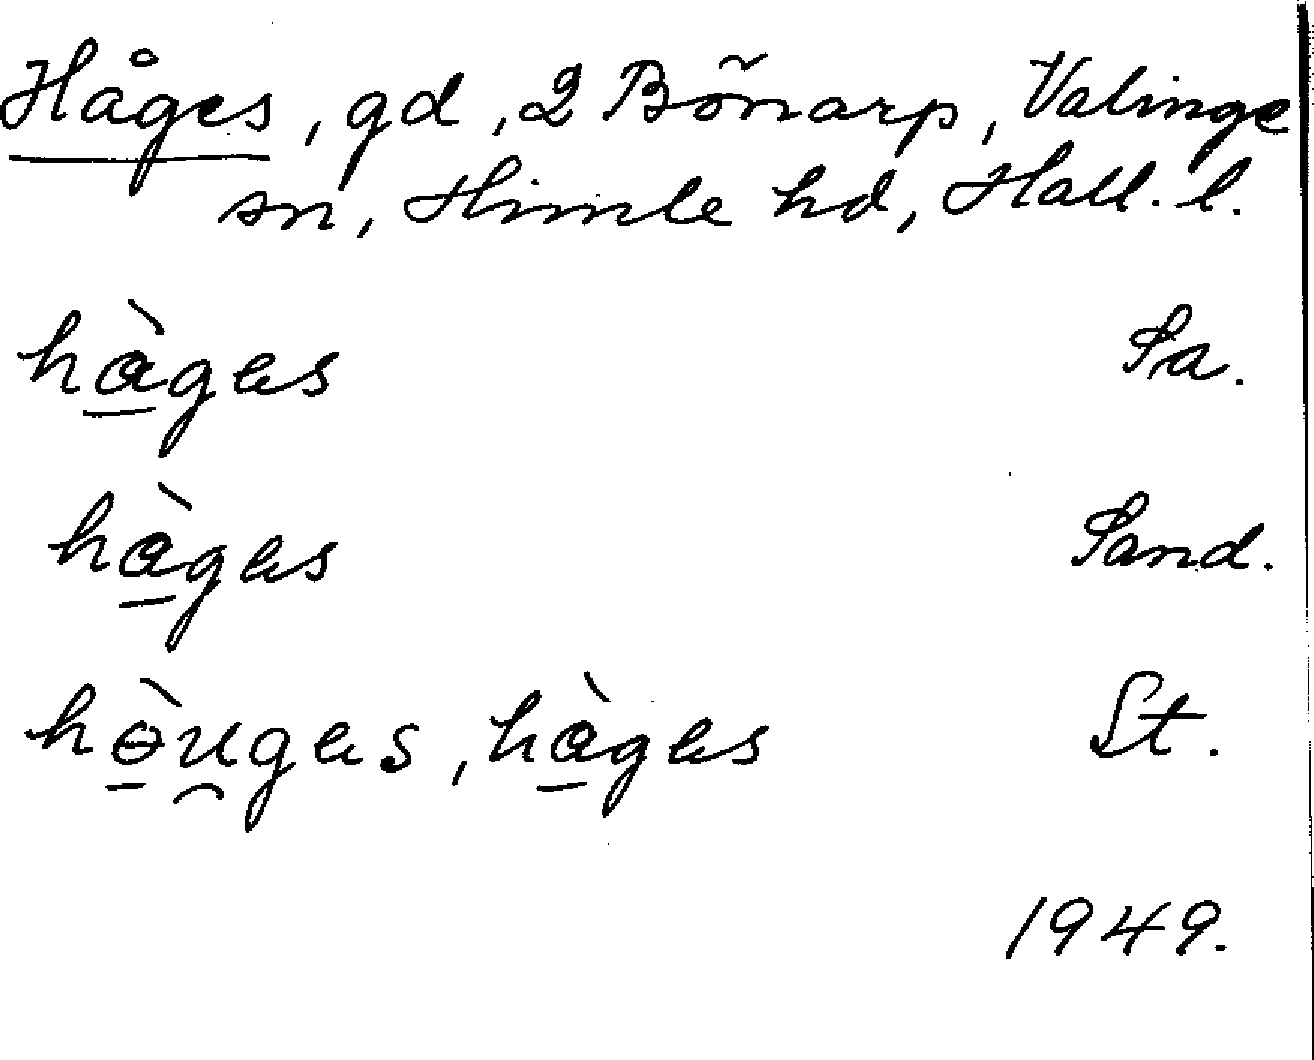 Håges, gd, 2 Bönarp, Valinge
sn, Himle hd, Hall. l.
hà̱gɐs Sa.
hà̱gɐs Sand.
hɵ̱̀u̯gɐs, hà̱gɐs St.
1949.